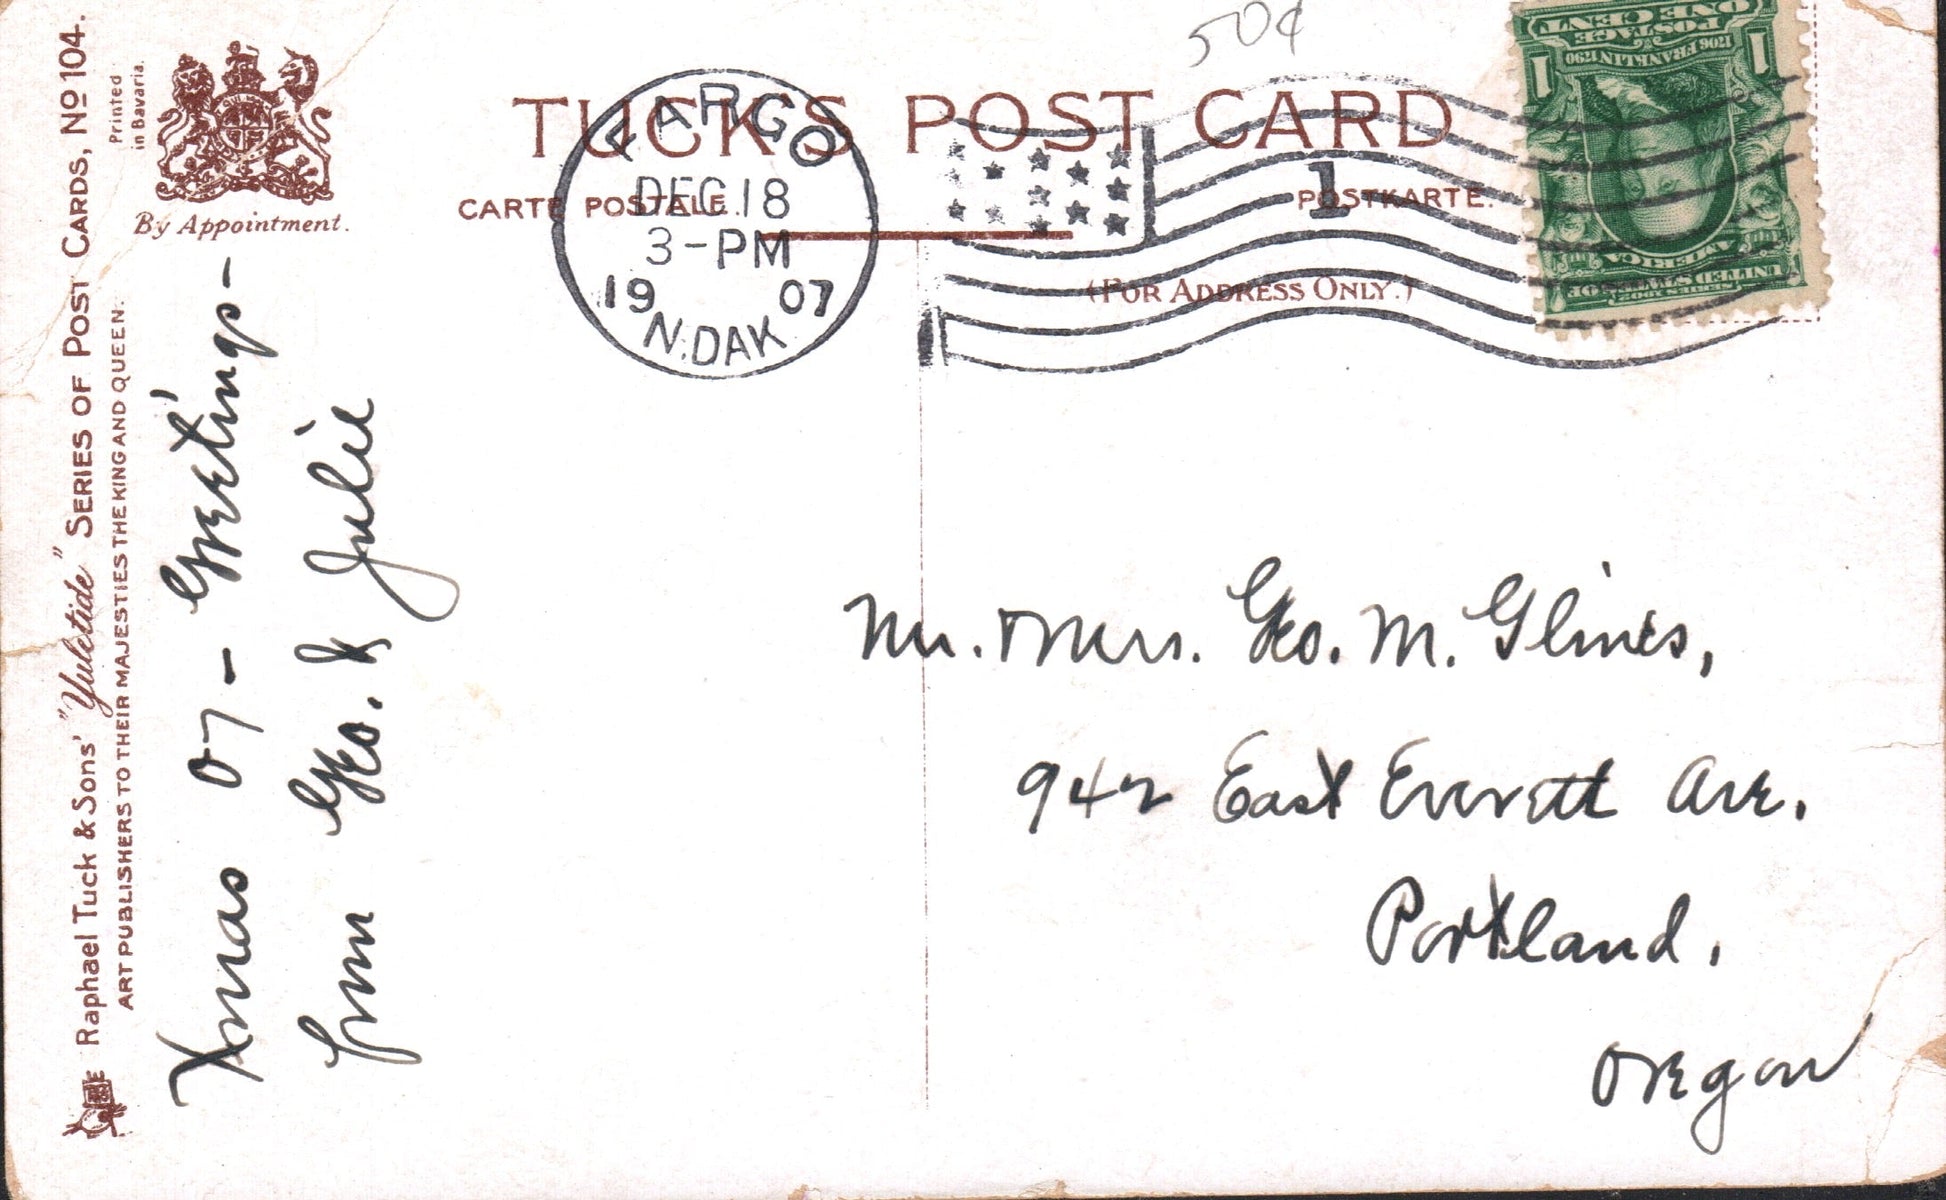 50¢
TUCK'S POST CARD
CARTE POSTALE.
POSTKARTE.
(FOR ADDRESS ONLY.)
FARGO
DEC 18
3-PM
1907
N.DAK
1
ONE CENT
POSTAGE
1706 FRANKLIN 1790
1 1
UNITED STATES OF
AMERICA
SERIES 1902
Printed
in Bavaria.
By Appointment.
Raphael Tuck & Sons' "Yuletide" SERIES OF POST CARDS, No 104.
ART PUBLISHERS TO THEIR MAJESTIES THE KING AND QUEEN.
Xmas 07 - Greetings -
from Geo. & Julie
Mr. & Mrs. Geo. M. Glines,
942 East Everett Ave.
Portland,
Oregon